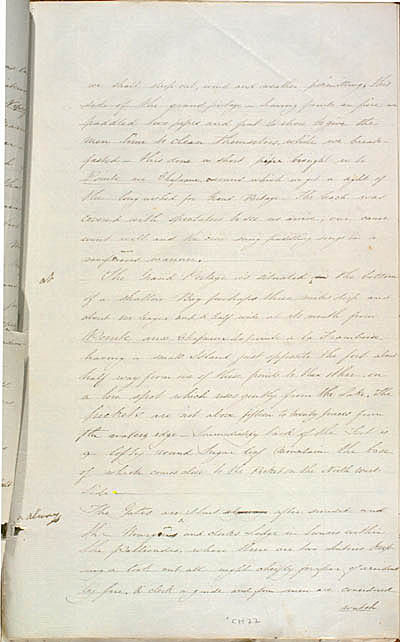 we shall sleep out, wind and weather permitting, this
side of the grand portage — having fir
paddled two pipes and put to shore to give the
men time to clean themselves, while we break-
fasted — this done a short pipe brought us to
Pointe au Chapeau around which we got a sight of
the long wished for Grand Portage. The beach was
covered with spectators to see us arrive, our canoe
went well and the crew sung paddling songs in a
vociferous manner.
The Grand Portage is situated in the bottom
at
of a shallow Bay perhaps three miles deep and
about league and a half wide at its mouth from
Pointe aux Chapeaux to pointe a la Framboise
having a small Island just opposite the fort about
half way from one of these points to the other: on
a low spot which rises gently from the Lake. The
pickets are not above fifteen to twenty paces from
the waters edge. Immediately back of the Fort is
a lofty round Sugar loaf mountain the base
of which comes close to the Picket on the North West
Side.
The Gates are shut after sunset and
always
the Bourgeois and clerks Lodge in houses within
the pallisades, where there are two
a look out all night chiefly for fear of accident
by fire. A clerk a guide and four men are considered
watch
CH 22